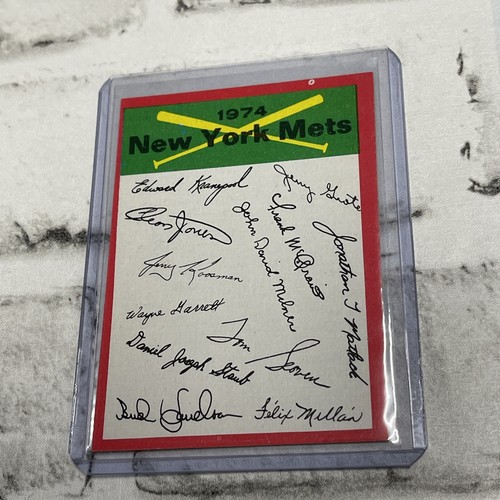 1974
New York Mets
Edward Kranepool
Jerry Grote
Cleon Jones
Frank McGraw
John David Milner
Jonathan T Matlack
Jerry Koosman
Wayne Garrett
Tom Seaver
Daniel Joseph Staub
Bud Harrelson
Félix Millán